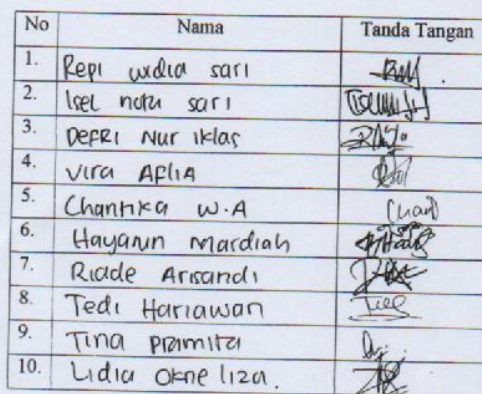 No Nama Tanda Tangan
1. Repi widia sari
2. Isel nota sari
3. DEFRI Nur iklas
4. Vira AFliA
5. Chantika W.A
6. Hayanun Mardiah
7. Riade Arisandi
8. Tedi Hariawan
9. Tina pramita
10. Lidia Okne liza.